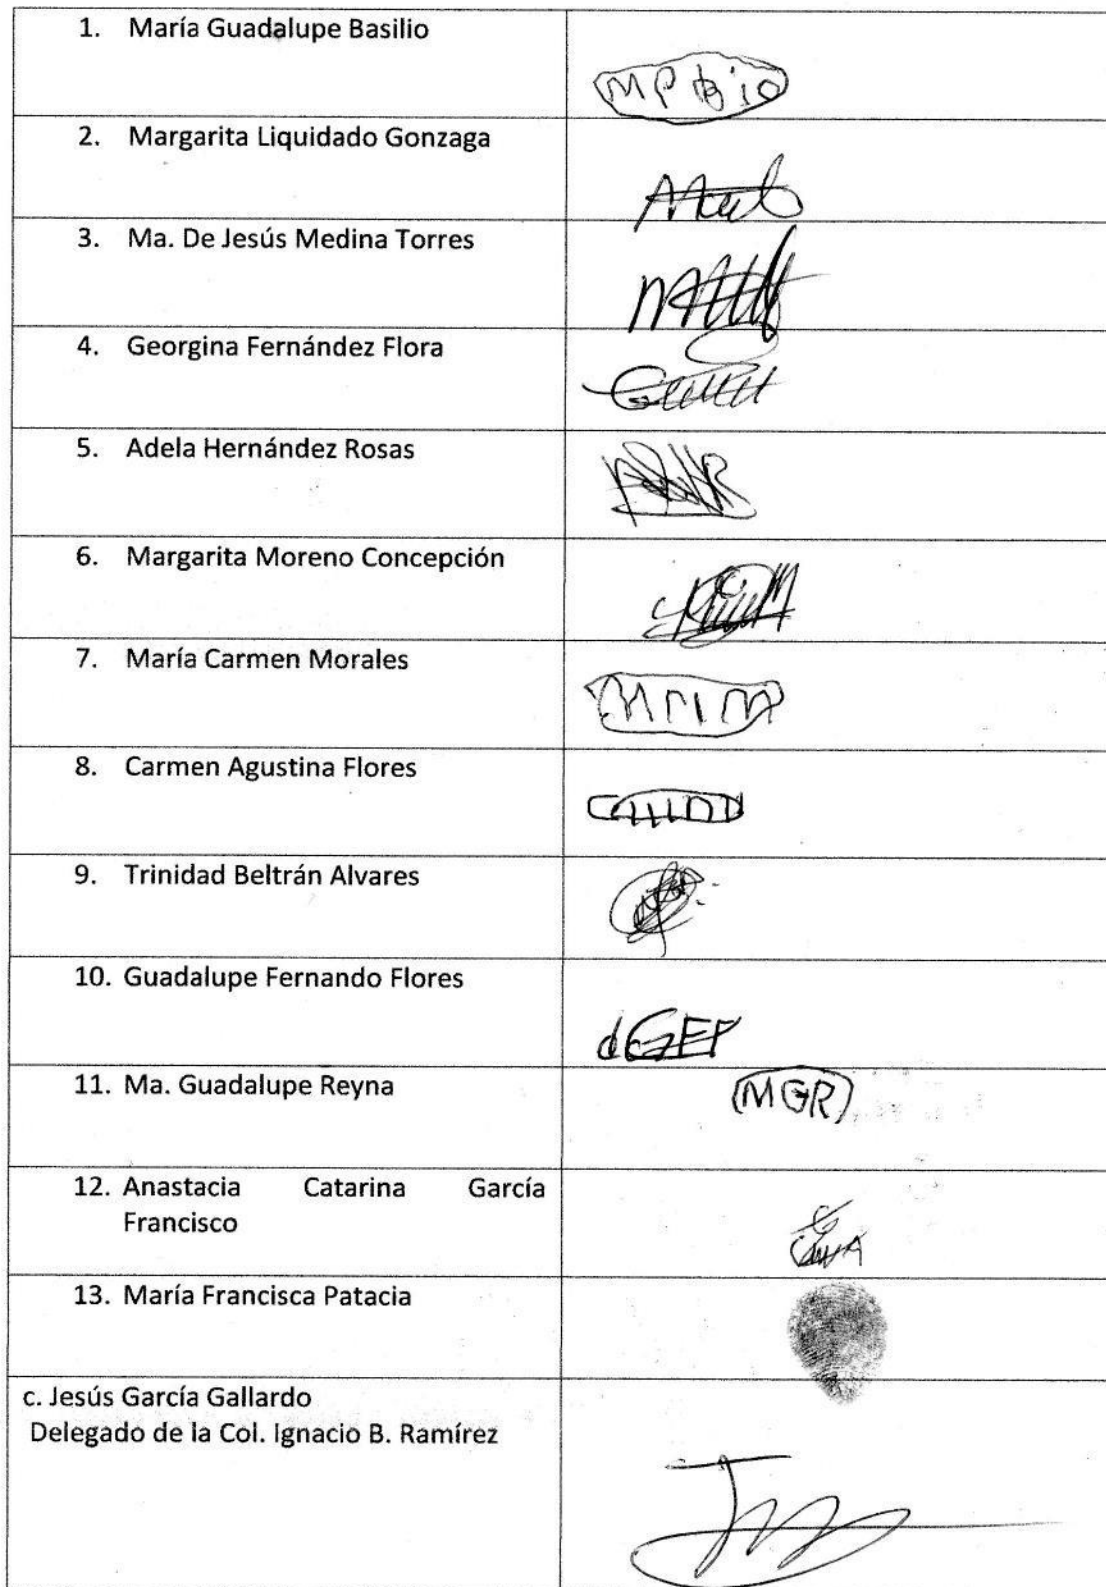 1. María Guadalupe Basilio
2. Margarita Liquidado Gonzaga
3. Ma. De Jesús Medina Torres
4. Georgina Fernández Flora
5. Adela Hernández Rosas
6. Margarita Moreno Concepción
7. María Carmen Morales
8. Carmen Agustina Flores
9. Trinidad Beltrán Alvares
10. Guadalupe Fernando Flores
11. Ma. Guadalupe Reyna
MGR
12. Anastacia Catarina García
Francisco
13. María Francisca Patacia
c. Jesús García Gallardo
Delegado de la Col. Ignacio B. Ramírez